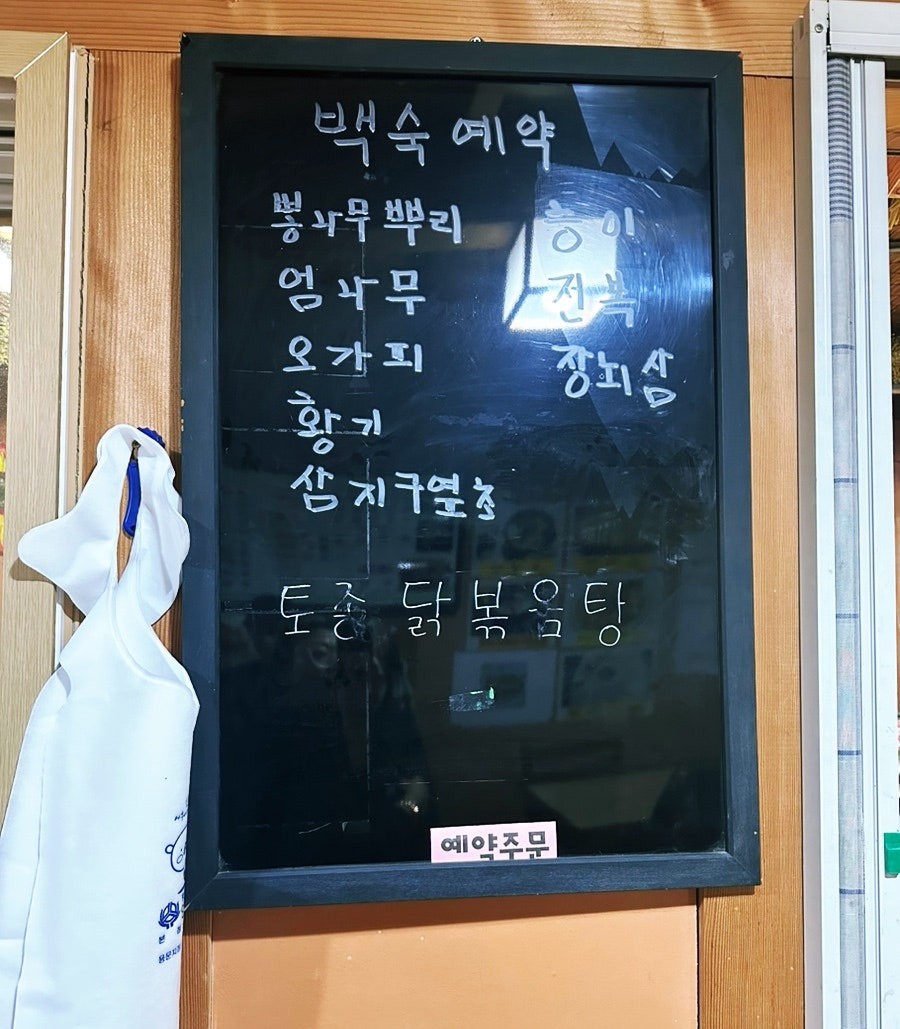 백숙 예약
뽕나무뿌리
엄나무
오가피
황기
삼지구엽초
능이
전복
장뇌삼
토종 닭볶음탕
예약주문